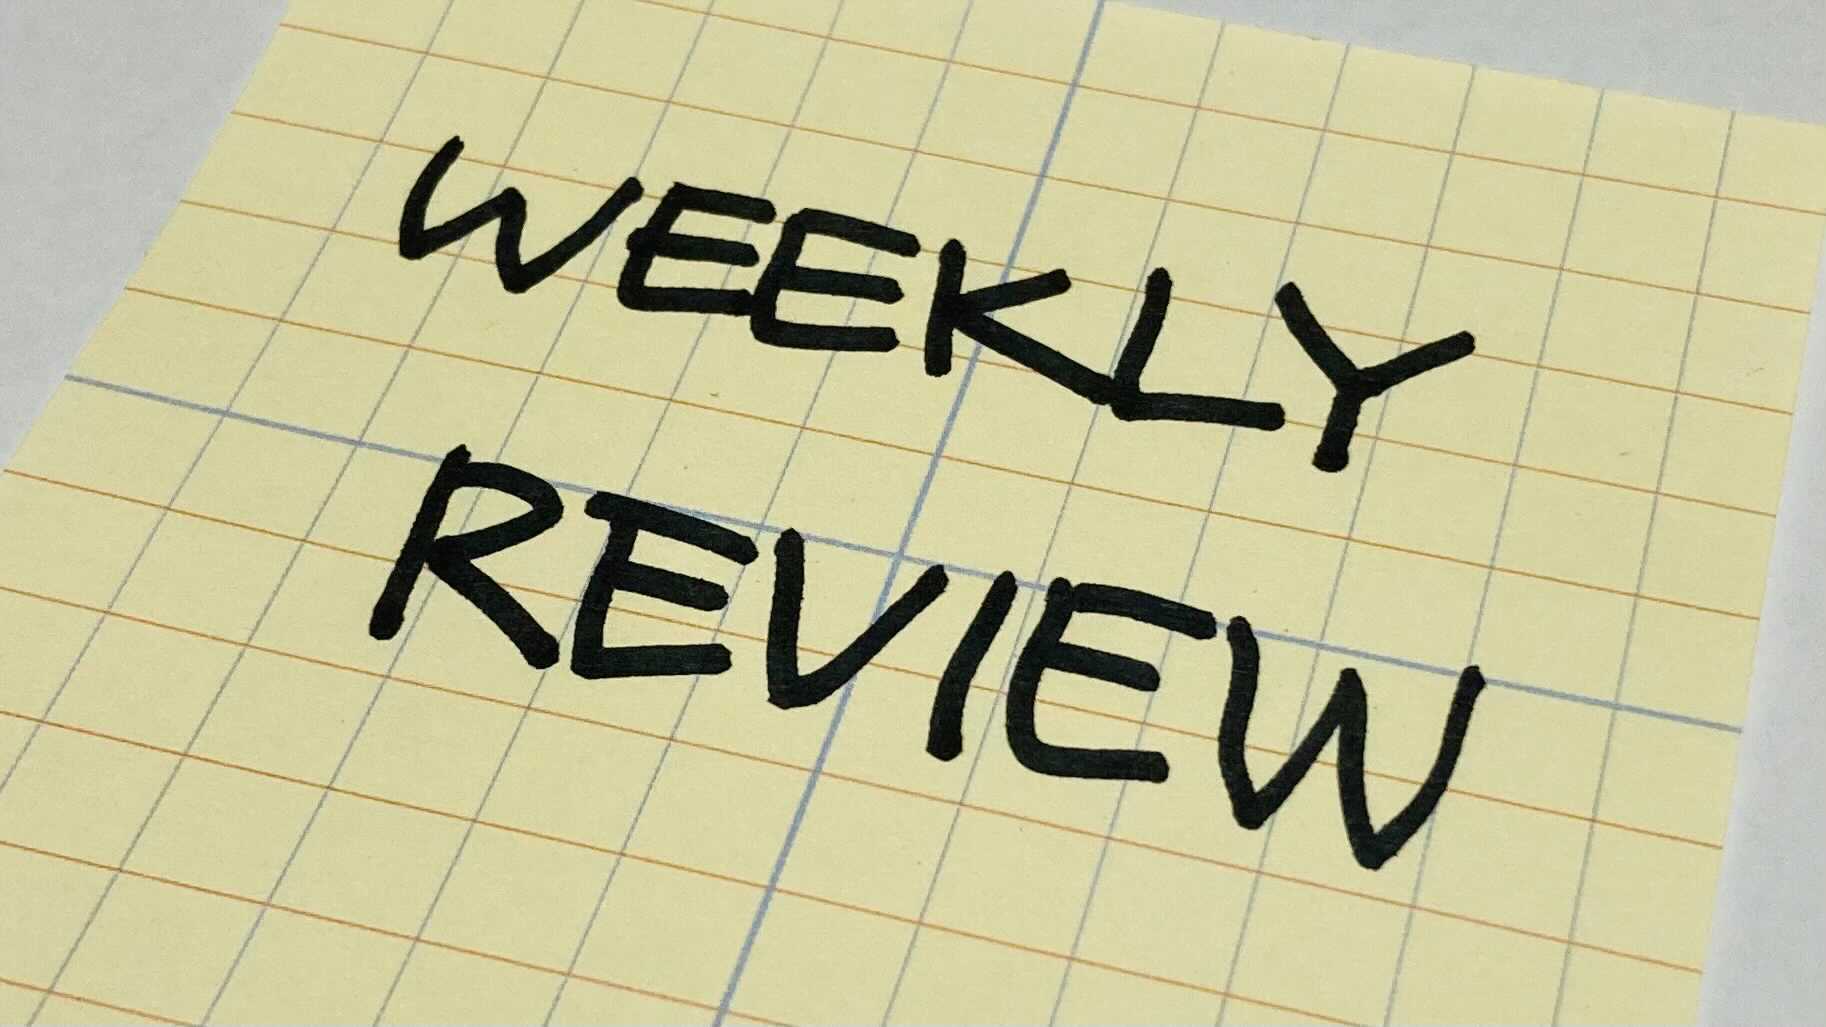 WEEKLY
REVIEW